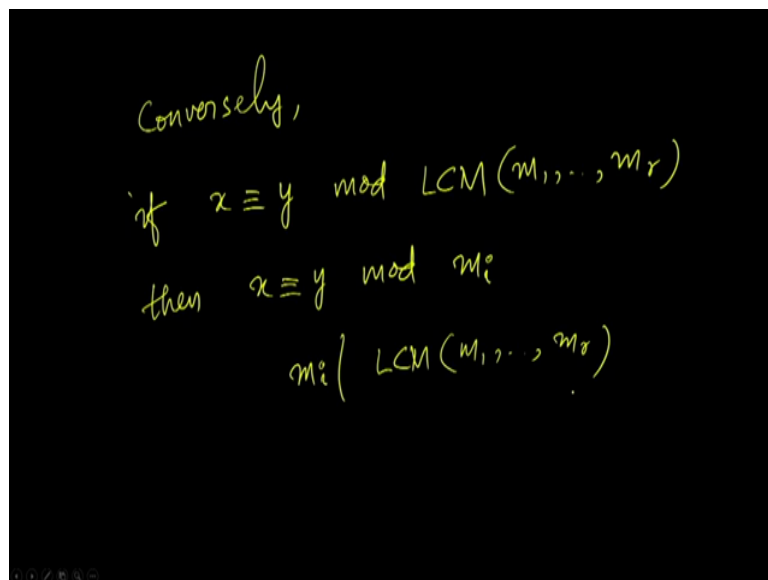 Conversely,
if x ≡ y mod LCM(m₁,..,mᵣ)
then x ≡ y mod mᵢ
mᵢ | LCM(m₁,..,mᵣ)